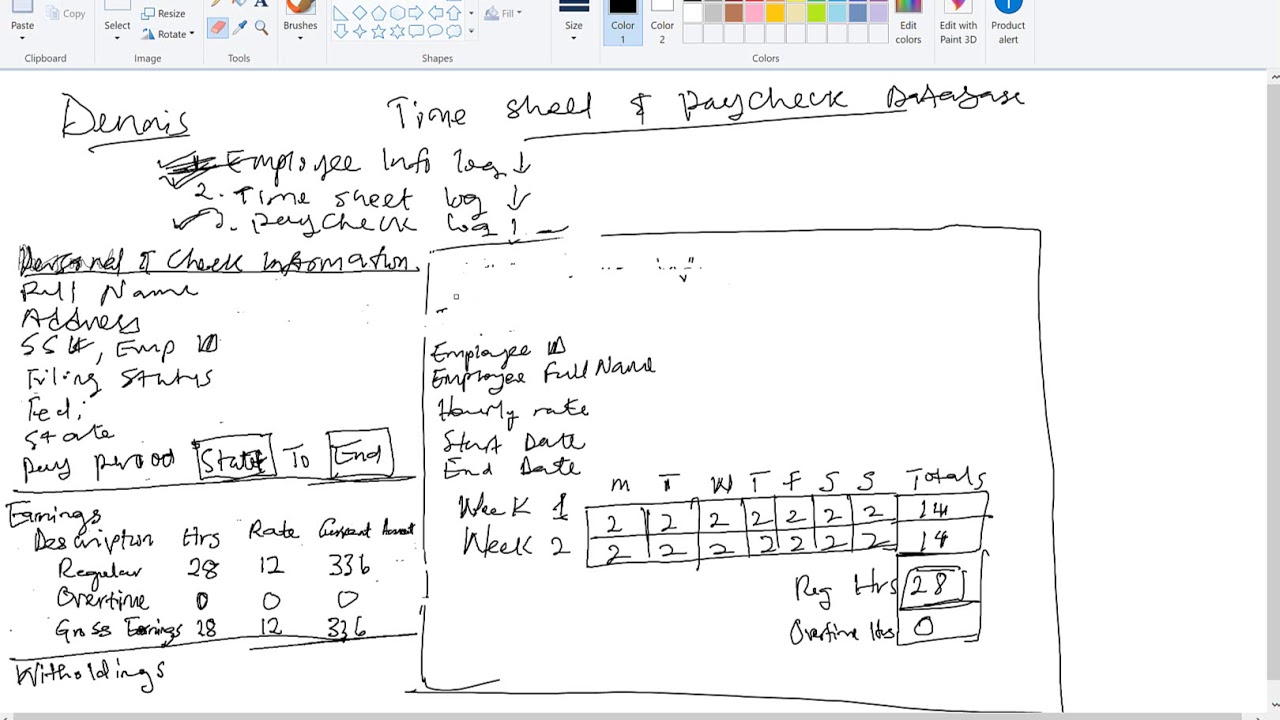 Paste
Copy
Select
Resize
Rotate
A
Brushes
Fill
Size
Color 1
Color 2
Edit colors
Edit with Paint 3D
Product alert
Clipboard
Image
Tools
Shapes
Colors
Dennis
Time sheet & paycheck Database
Employee Info log
2. Time sheet log
3. paycheck log
Personal & Check Information
Full Name
Address
SS#, Emp ID
Filing Status
Fed:
State
Pay period Start To End
Earnings
Description Hrs Rate Current Amount
Regular 28 12 336
Overtime 0 0 0
Gross Earnings 28 12 336
Witholdings
Employee ID
Employee Full Name
Hourly rate
Start Date
End Date
M T W T F S S Totals
Week 1 2 2 2 2 2 2 2 14
Week 2 2 2 2 2 2 2 2 14
Reg Hrs 28
Overtime Hrs 0